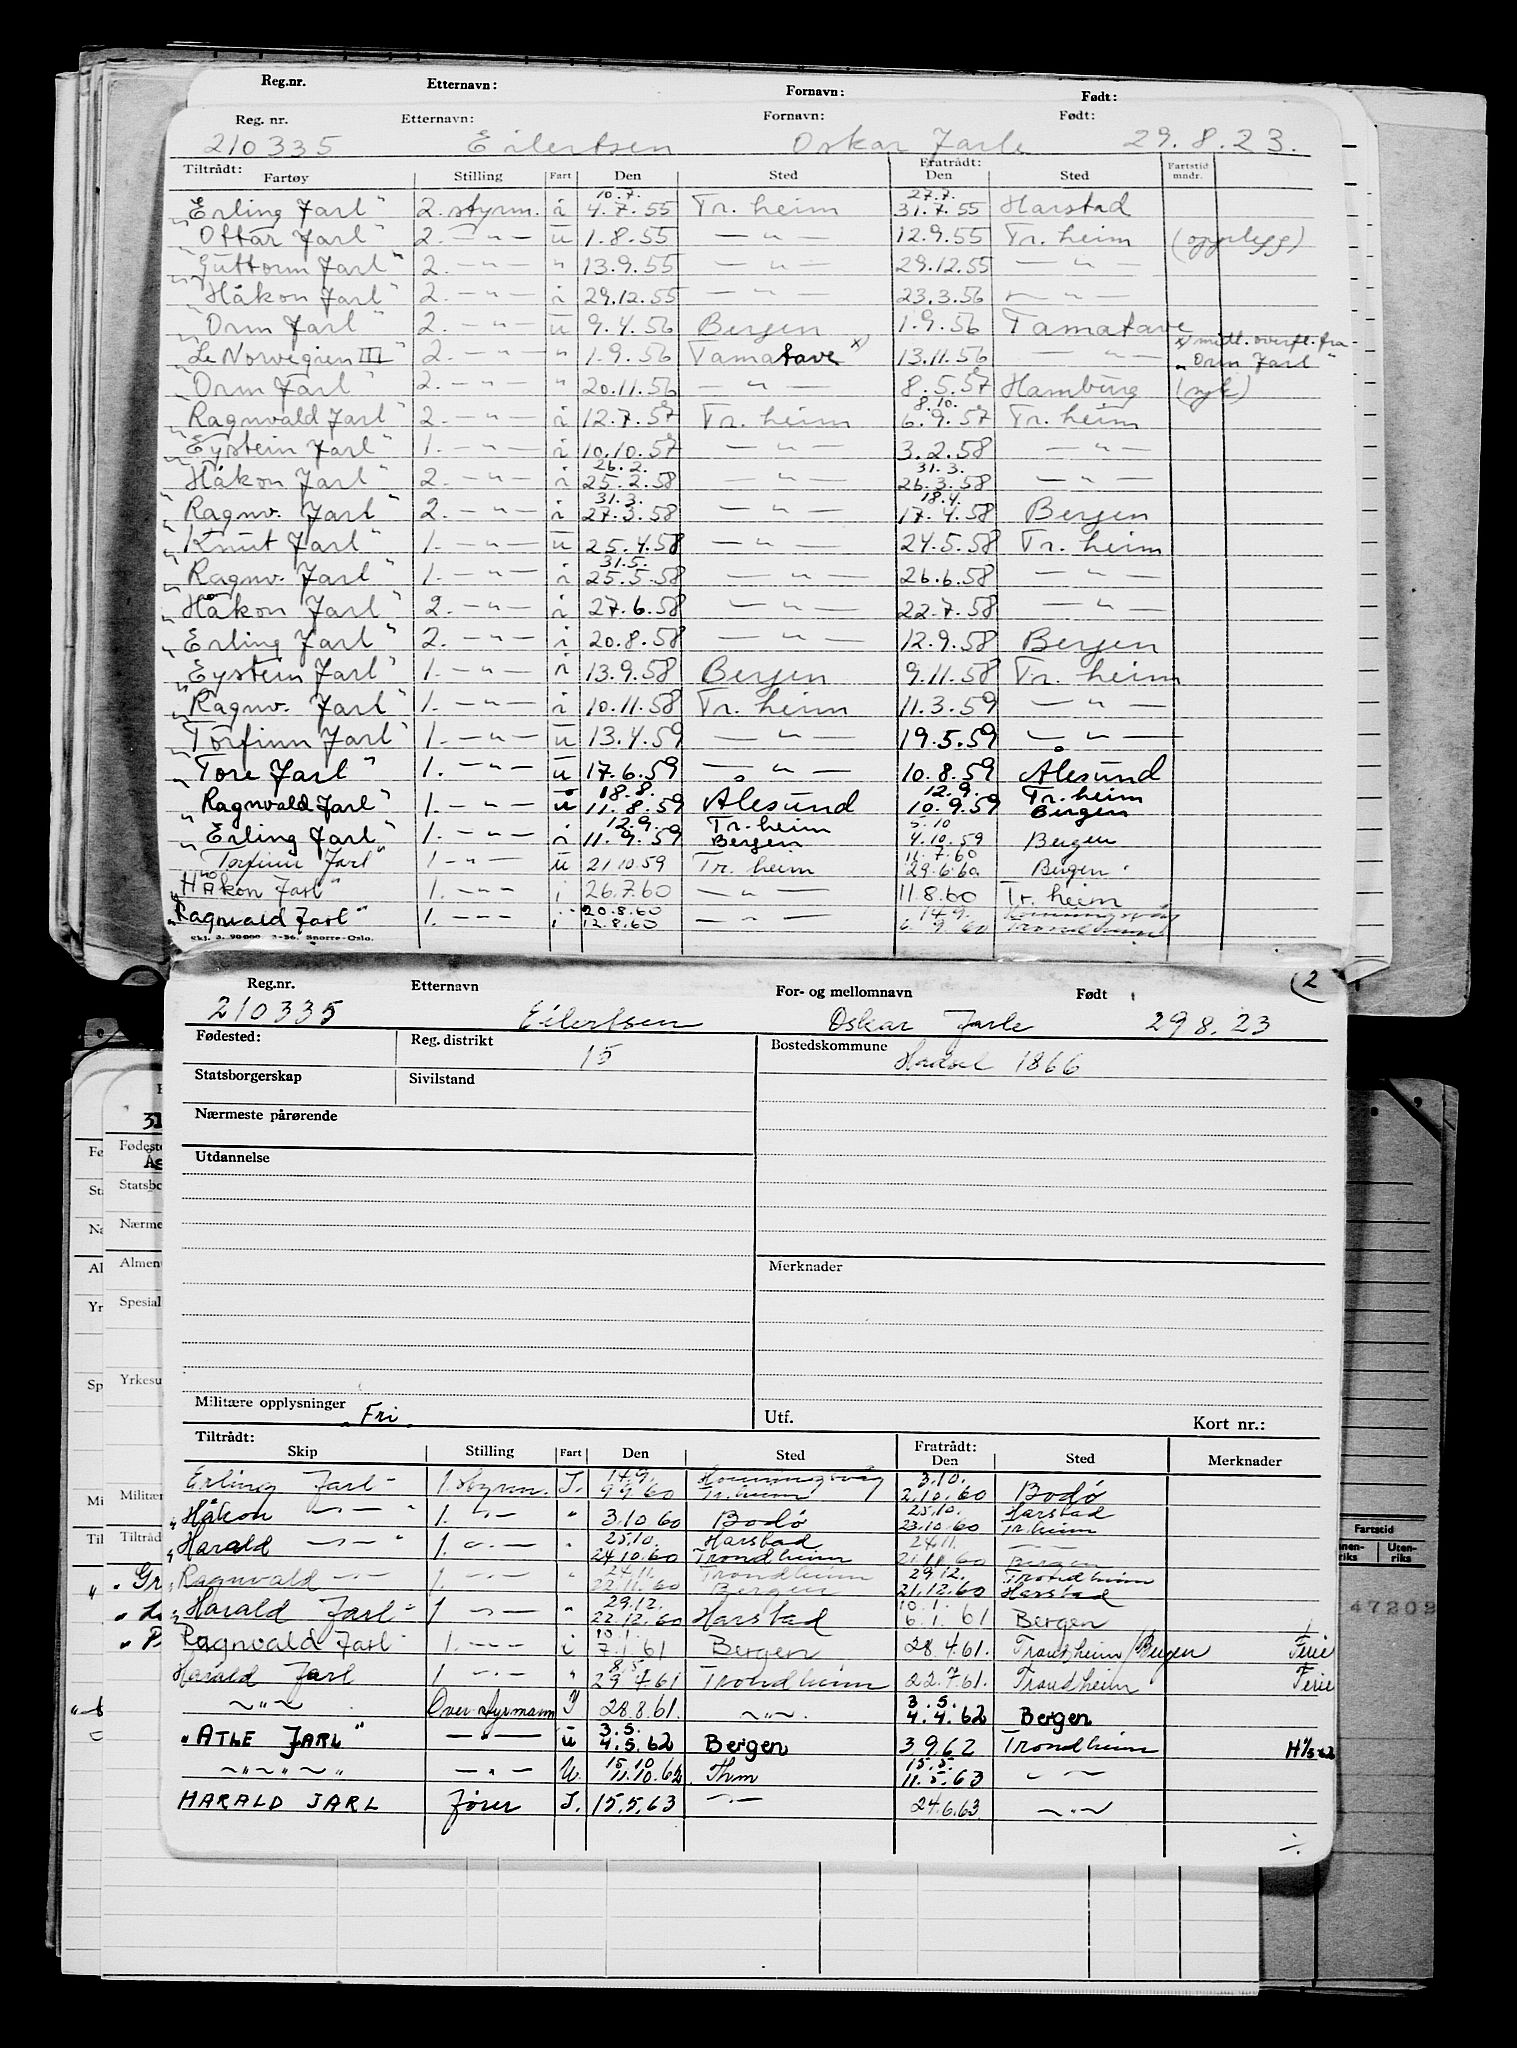 Reg.nr. Etternavn: Fornavn: Født:
Reg. nr. Etternavn: Fornavn: Født:
210335 Eilertsen Oskar Jarle 29.8.23.
Tiltrådt: Fratrådt: Fartstid
Fartøy Stilling Fart Den Sted Den Sted mndr.
10.7. 27.7.
"Erling Jarl" 2. styrm. i 4.7.55 Tr. heim 31.7.55 Harstad
"Ottar Jarl" 2. — " — u 1.8.55 — " — 12.9.55 Tr. heim (opplegg)
"Guttorm Jarl" 2. — " — " 13.9.55 — " — 29.12.55 — " —
"Håkon Jarl" 2. — " — i 29.12.55 — " — 23.3.56 — " —
"Orm Jarl" 2. — " — u 9.4.56 Bergen 1.9.56 Tamatave
"Le Norvegien III" 2. — " — " 1.9.56 Tamatave x) 13.11.56 — " — x) midl. overfl. fra
"Orm Jarl"
"Orm Jarl" 2. — " — " 20.11.56 — " — 8.5.57 Hamburg (syk)
8.10.
"Ragnvald Jarl" 2. — " — i 12.7.57 Tr. heim 6.9.57 Tr. heim
"Eystein Jarl" 1. — " — i 10.10.57 — " — 3.2.58 — " —
26.2. 31.3.
"Håkon Jarl" 2. — " — i 25.2.58 — " — 26.3.58 — " —
31.3. 18.4.
"Ragnv. Jarl" 2. — " — i 27.3.58 — " — 17.4.58 Bergen
"Knut Jarl" 1. — " — u 25.4.58 — " — 24.5.58 Tr. heim
31.5.
"Ragnv. Jarl" 1. — " — i 25.5.58 — " — 26.6.58 — " —
"Håkon Jarl" 2. — " — i 27.6.58 — " — 22.7.58 — " —
"Erling Jarl" 2. — " — i 20.8.58 — " — 12.9.58 Bergen
"Eystein Jarl" 1. — " — i 13.9.58 Bergen 9.11.58 Tr. heim
"Ragnv. Jarl" 1. — " — i 10.11.58 Tr. heim 11.3.59 — " —
"Torfinn Jarl" 1. — " — u 13.4.59 — " — 19.5.59 — " —
"Tore Jarl" 1. — " — u 17.6.59 — " — 10.8.59 Ålesund
18.8. 12.9. Tr. heim
"Ragnvald Jarl" 1. — " — u 11.8.59 Ålesund 10.9.59 Bergen
12.9. Tr. heim 5.10
"Erling Jarl" 1. — " — i 11.9.59 Bergen 4.10.59 Bergen
11.7.60
"Torfinn Jarl" 1 — " — u 21.10.59 Tr. heim 29.6.60 Bergen
"Håkon Jarl" 1. — " — i 26.7.60 — " — 11.8.60 Tr. heim
20.8.60 14.9. Honningsvåg
"Ragnvald Jarl" 1. — " — i 12.8.60 — " — 6.9.60 Trondheim
Snorre-Oslo.
2
Reg.nr. Etternavn For- og mellomnavn Født
210335 Eilertsen Oskar Jarle 29 8. 23
Fødested: Reg. distrikt 15 Bostedskommune Hadsel 1866
Statsborgerskap Sivilstand
Nærmeste pårørende
Utdannelse
Merknader
Militære opplysninger Fri. Utf. Kort nr.:
Tiltrådt: Fratrådt:
Skip Stilling Fart Den Sted Den Sted Merknader
14.9. Honningsvåg 3.10.
Erling Jarl 1. styrm. I. 9.9.60 Tr. heim 2.10.60 Bodø
25.10. Harstad
"Håkon — " — " 1. — " — " 3.10.60 Bodø 23.10.60 Tr. heim
25.10. Harstad 24.11. — " —
"Harald — " — " 1. — " — " 24.10.60 Trondheim 21.11.60 Bergen
24.11. Trondheim 29.12. Trondheim
Ragnvald — " — 1. — " — " 22.11.60 Bergen 21.12.60 Harstad
29.12. 10.1.
"Harald Jarl" 1 — " — " 22.12.60 Harstad 6.1.61 Bergen
10.1.
Ragnvald Jarl 1. — " — i 7.1.61 Bergen 28.4.61. Trondheim/Bergen Ferie
Harald Jarl 1 — " — " 61 Trondheim 22.7.61. Trondheim Ferie
3.5.
— " — Overstyrmann I 28.8.61. — " — 4.4.62 Bergen
3.5.
"ATLE JARL" — " — u 4.5.62 Bergen 3 9 62 Trondheim
15.10 15.5.
— " — " — " — " — U. 11.10.62 Thm 11.5.63 — " —
HARALD JARL fører I. 15.5.63 — " — 24.6.63. — " —
Fødeste
Statsbo
Nærme
Almen
Spesial
Yrkesu
Militær
Tiltrådt
Fartstid
Uten-
riks
47202